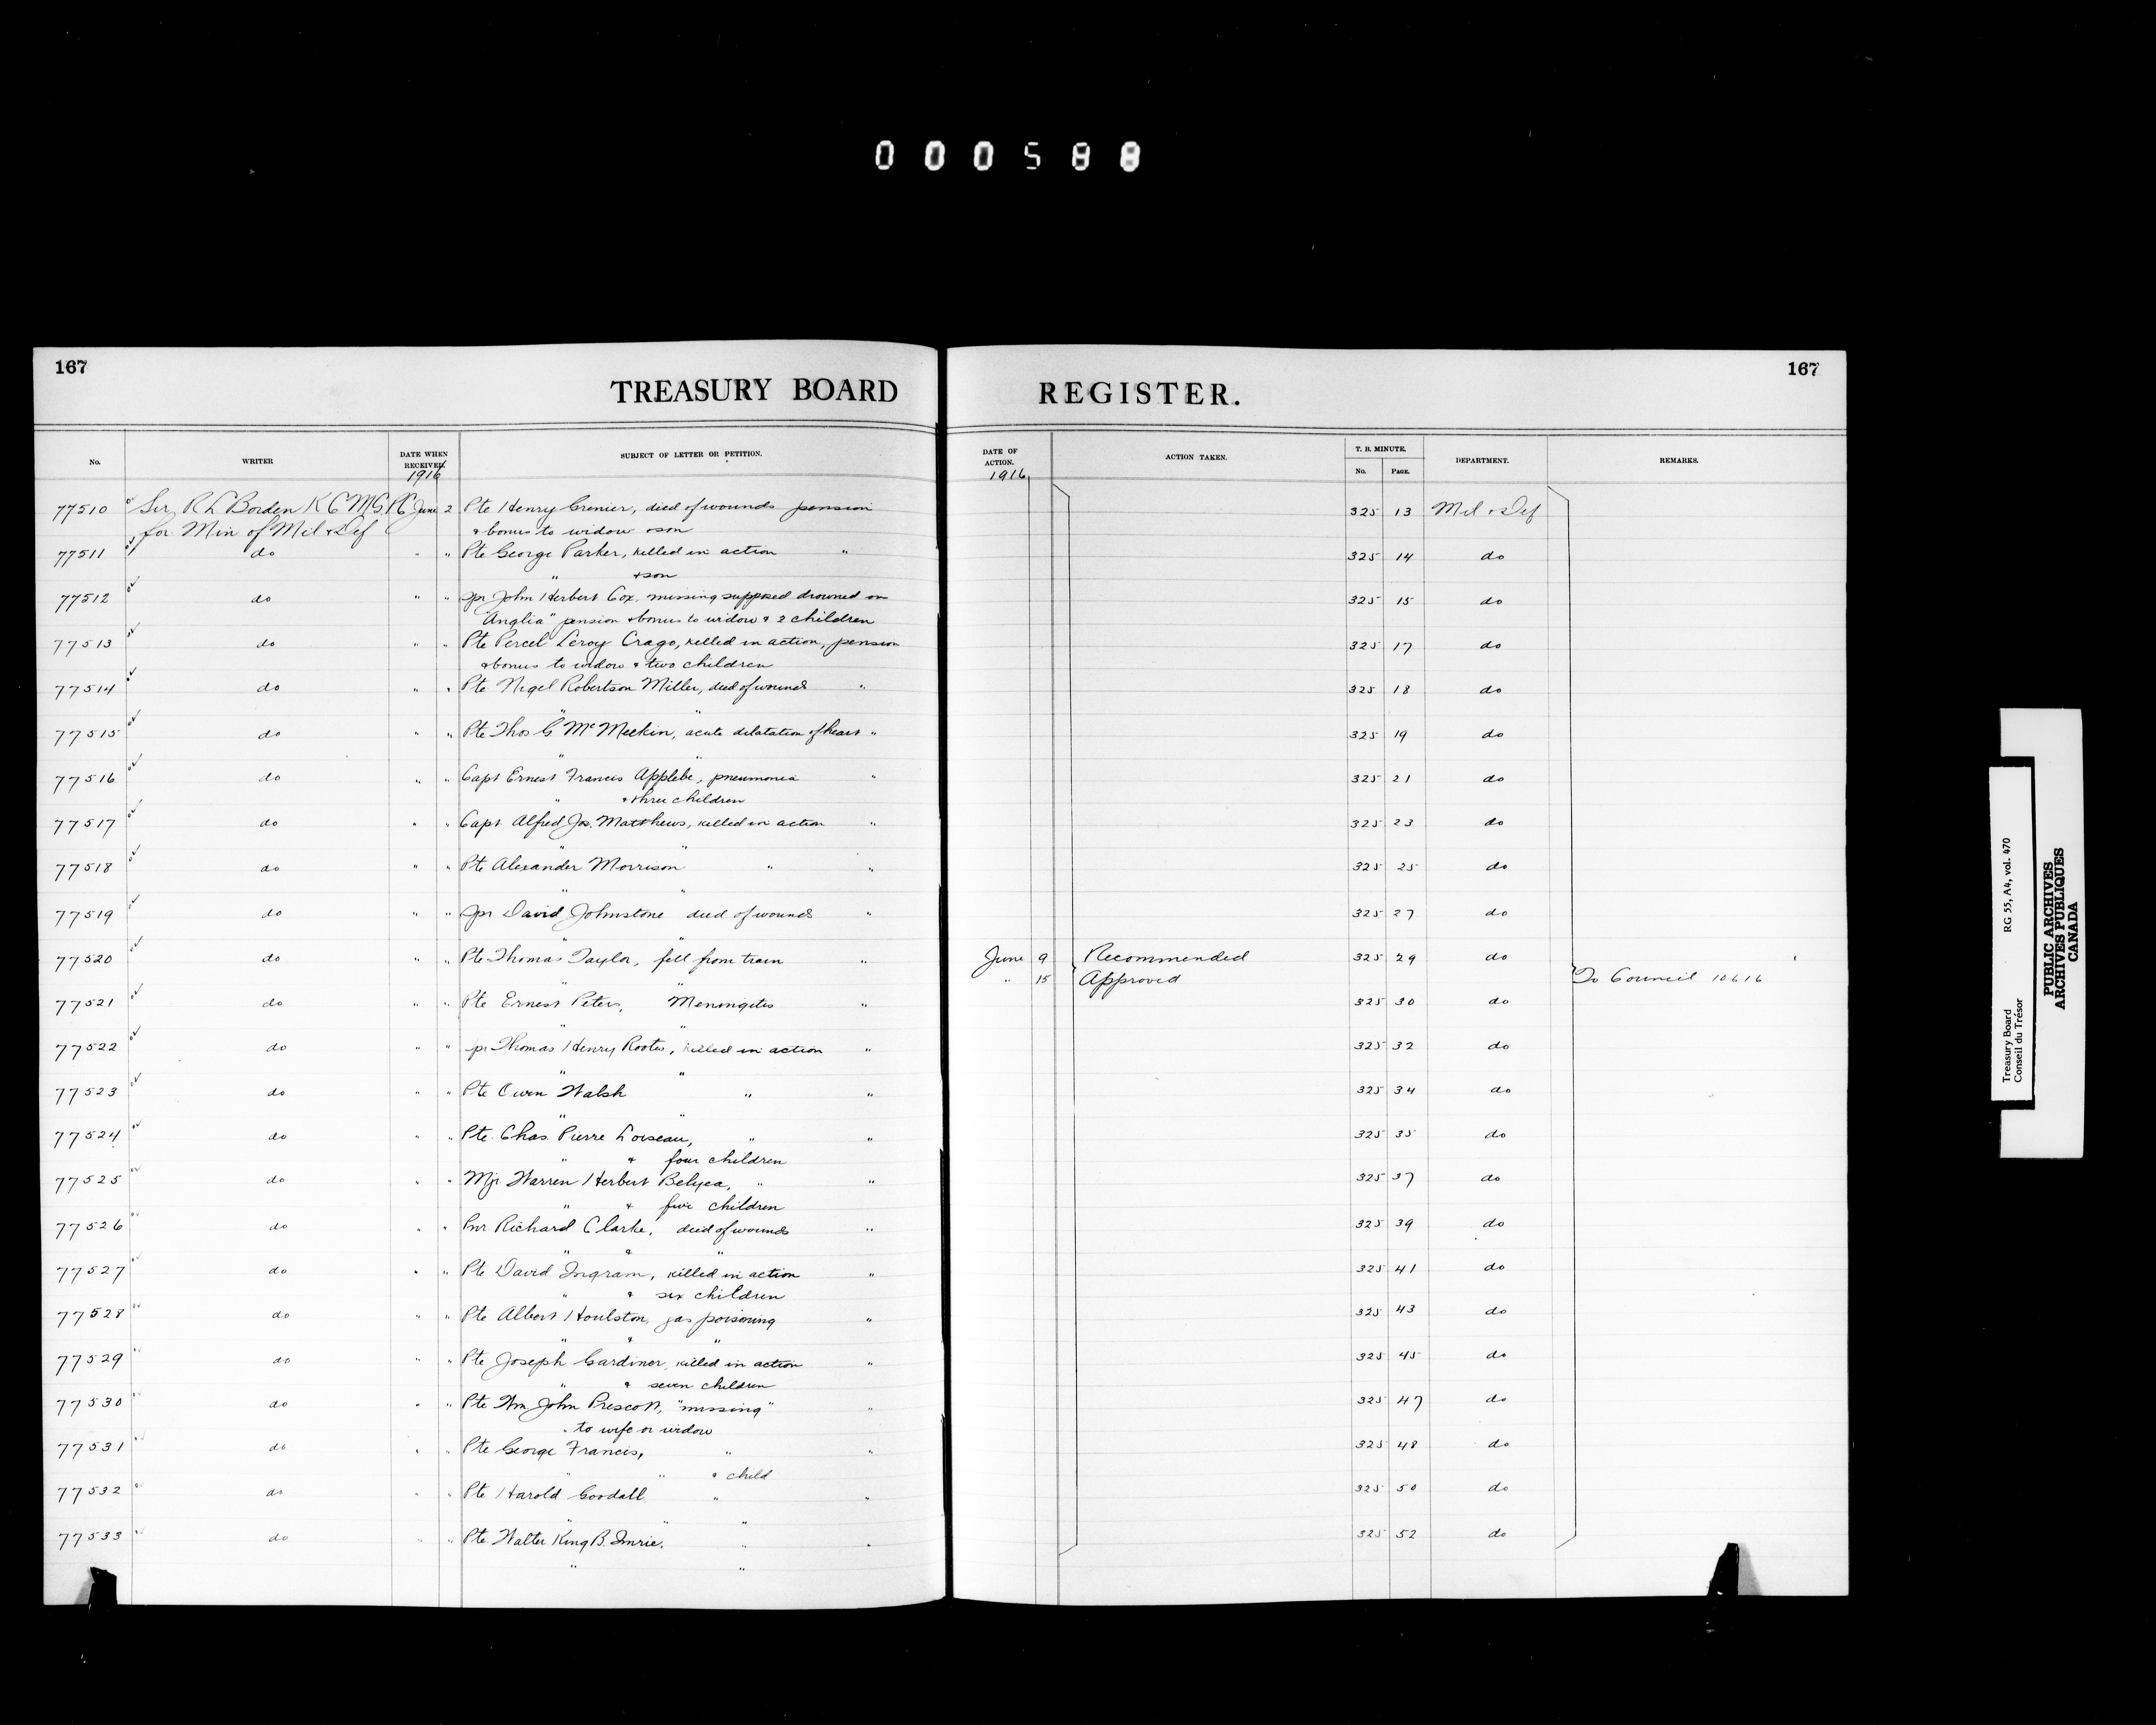 000588
167
167
TREASURY BOARD REGISTER.
No. WRITER DATE WHEN RECEIVED. SUBJECT OF LETTER OR PETITION. DATE OF ACTION. ACTION TAKEN. T. B. MINUTE. No. PAGE. DEPARTMENT. REMARKS.
1916 1916
77510 Sir R L Borden K C M G P C June 2 Pte Henry Grenier, died of wounds pension 325 13 Mil & Def
for Min of Mil & Def & bonus to widow & son
77511 do " " Pte George Parker, killed in action " 325 14 do
" & son
77512 do " " Spr John Herbert Cox, missing supposed drowned on 325 15 do
"Anglia" pension & bonus to widow & 2 children
77513 do " " Pte Percel Leroy Crago, killed in action, pension 325 17 do
& bonus to widow & two children
77514 do " " Pte Nigel Robertson Miller, died of wounds " 325 18 do
" "
77515 do " " Pte Thos G McMeekin, acute dilatation of heart " 325 19 do
" "
77516 do " " Capt Ernest Francis Applebe, pneumonia " 325 21 do
" & three children
77517 do " " Capt. Alfred Jos. Matthews, killed in action " 325 23 do
" "
77518 do " " Pte Alexander Morrison " " 325 25 do
" "
77519 do " " Spr David Johnstone died of wounds " 325 27 do
" "
77520 do " " Pte Thomas Taylor, fell from train " June 9 Recommended 325 29 do
" " 15 Approved To Council 10 6 16
77521 do " " Pte Ernest Peters, Meningitis " 325 30 do
" "
77522 do " " Spr Thomas Henry Rootes, killed in action " 325 32 do
" "
77523 do " " Pte Owen Walsh " " 325 34 do
" "
77524 do " " Pte. Chas. Pierre Loiseau, " " 325 35 do
" & four children
77525 do " " Mjr Warren Herbert Belyea, " " 325 37 do
" & five children
77526 do " " Pnr. Richard Clarke, died of wounds " 325 39 do
" & "
77527 do " " Pte David Ingram, killed in action " 325 41 do
" & six children
77528 do " " Pte Albert Houlston, gas poisoning " 325 43 do
" & "
77529 do " " Pte Joseph Gardiner, killed in action " 325 45 do
" & seven children
77530 do " " Pte Wm John Prescott, "missing" " 325 47 do
" to wife or widow
77531 do " " Pte George Francis, " " 325 48 do
" " & child
77532 do " " Pte Harold Goodall " " 325 50 do
" "
77533 do " " Pte. Walter King B. Imrie. " " 325 52 do
" "
Treasury Board RG 55, A4, vol. 470
Conseil du Trésor
PUBLIC ARCHIVES
ARCHIVES PUBLIQUES
CANADA